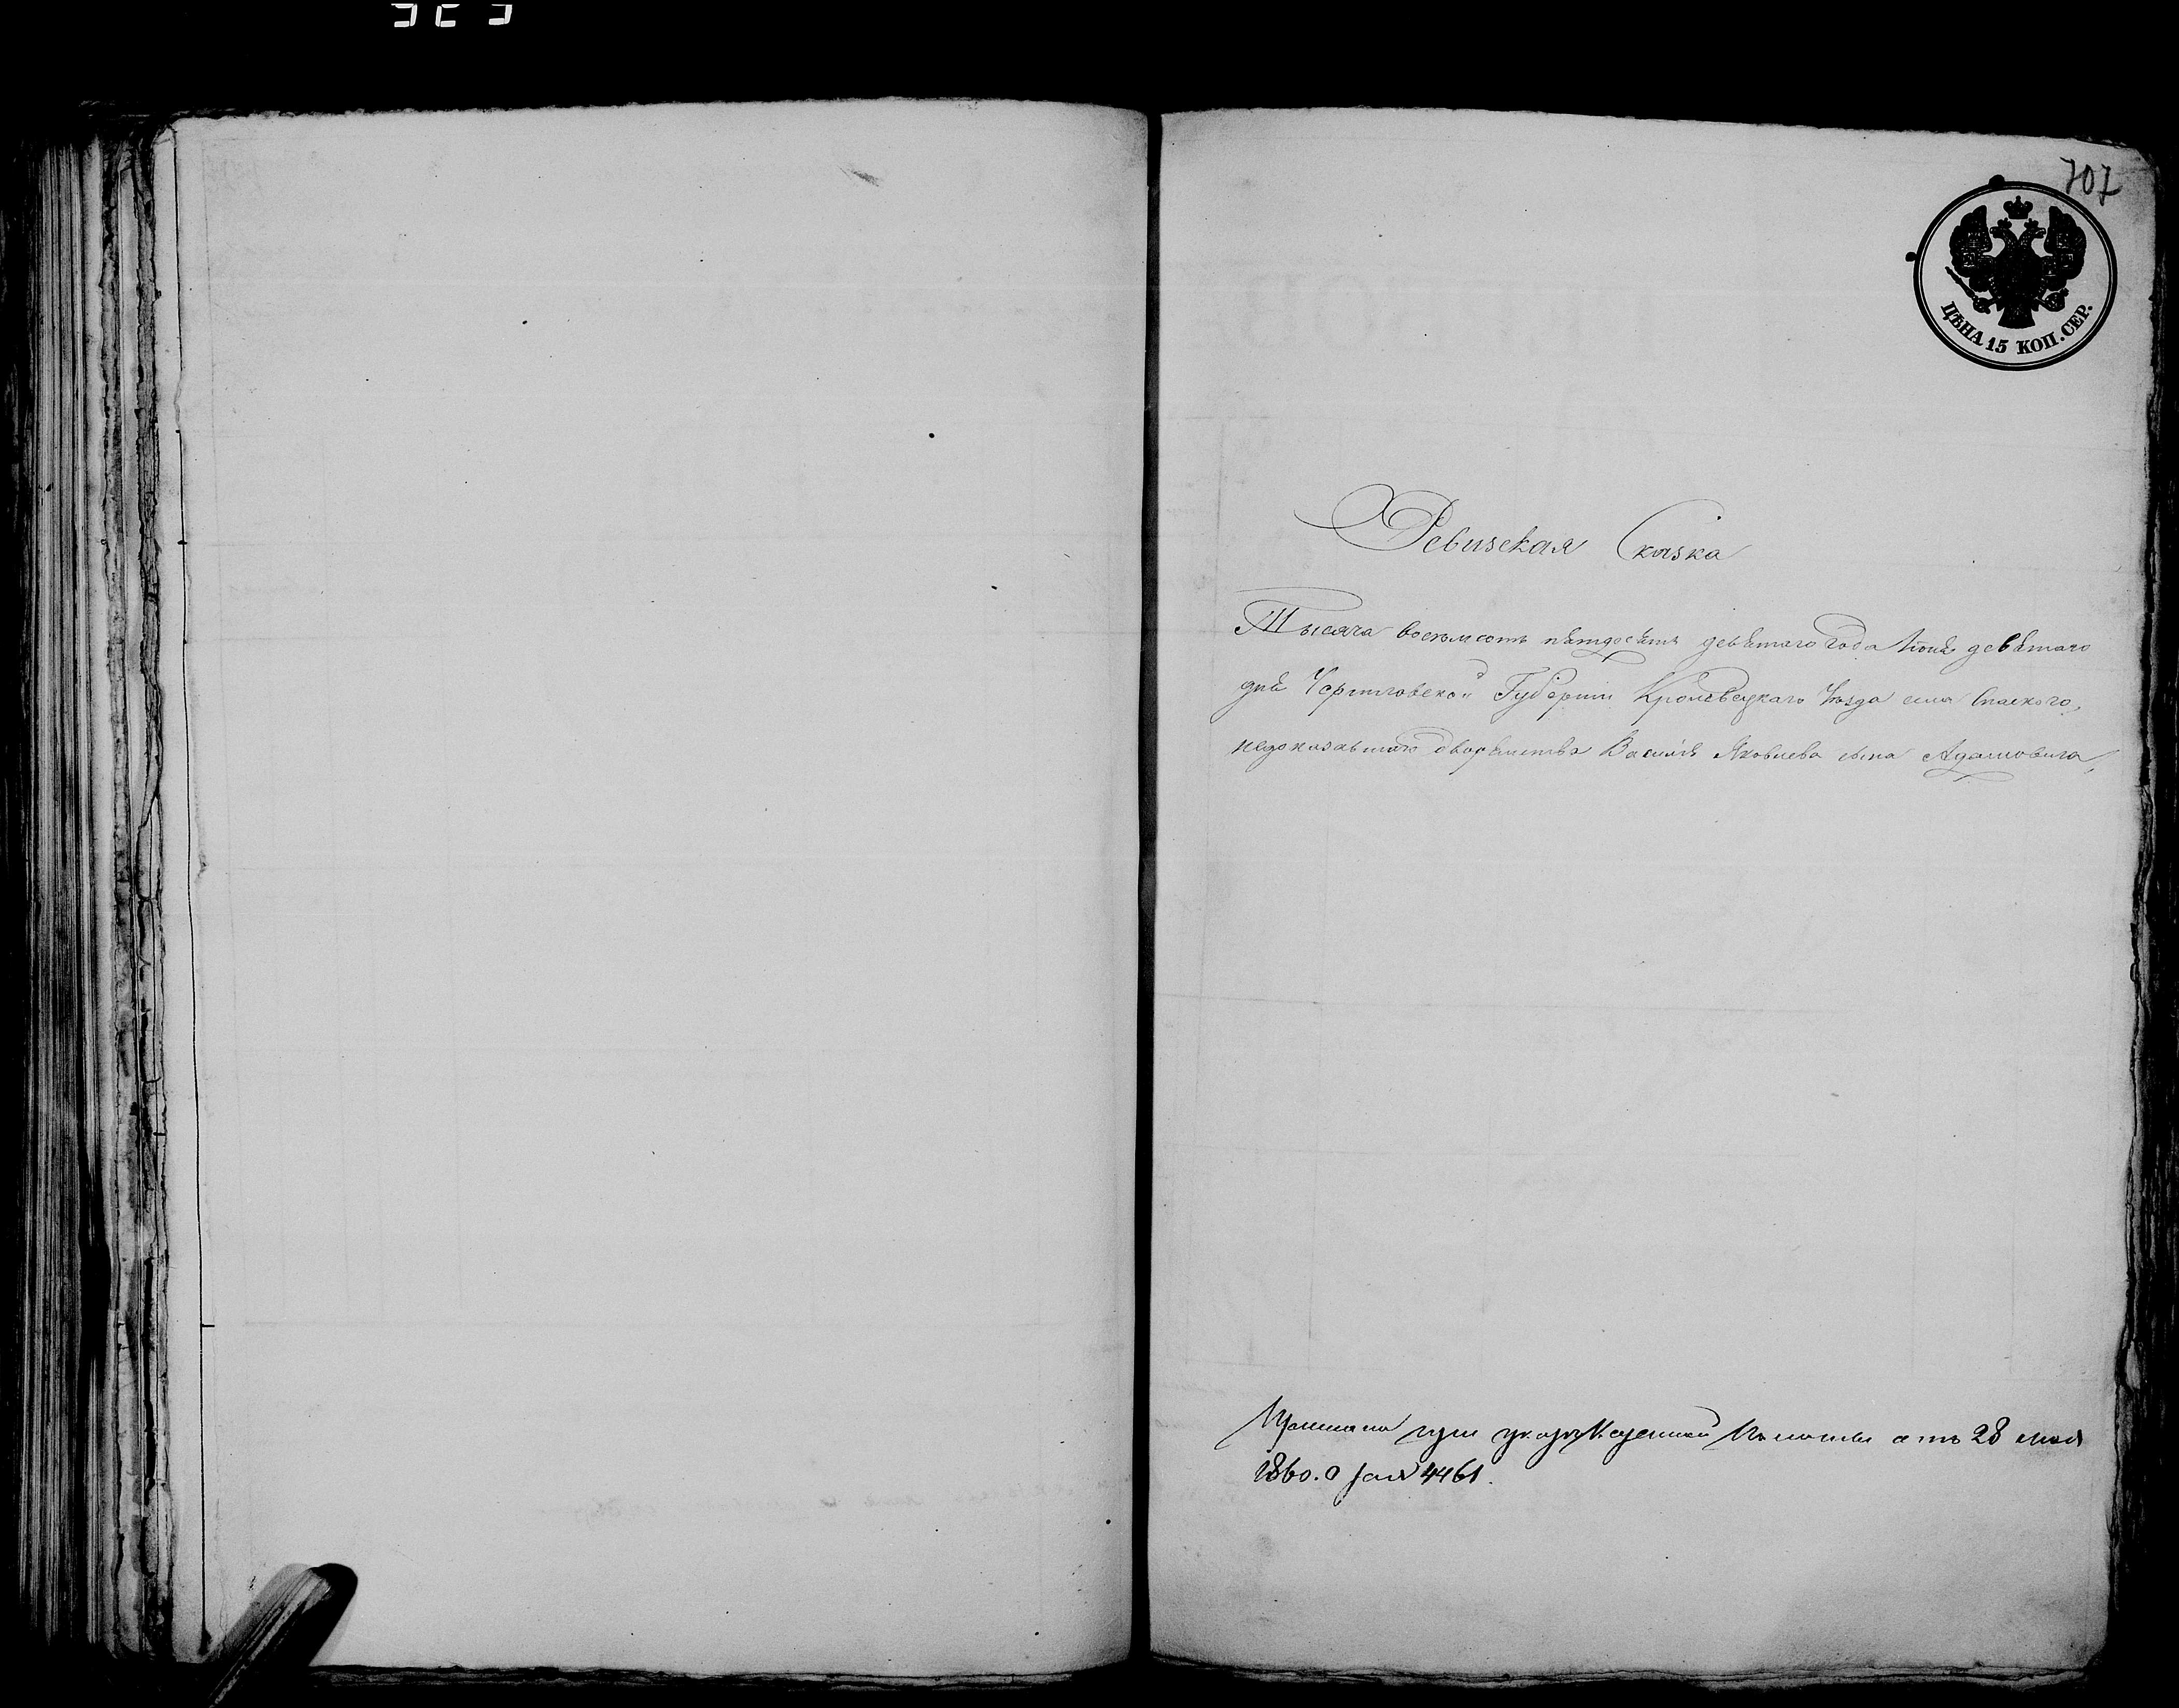 707
ЦѢНА 15 КОП. СЕР.
Ревизская Сказка
Тысяча восемсотъ пятдесятъ девятаго года Іюня девятаго
дня Черниговской Губерніи Кролевецкаго Уѣзда села Спаского,
недоказавшаго дворянства Василія Яковлева сына Адамовича,
при Казенной Палаты отъ 28 мая
1860. г за № 4461.